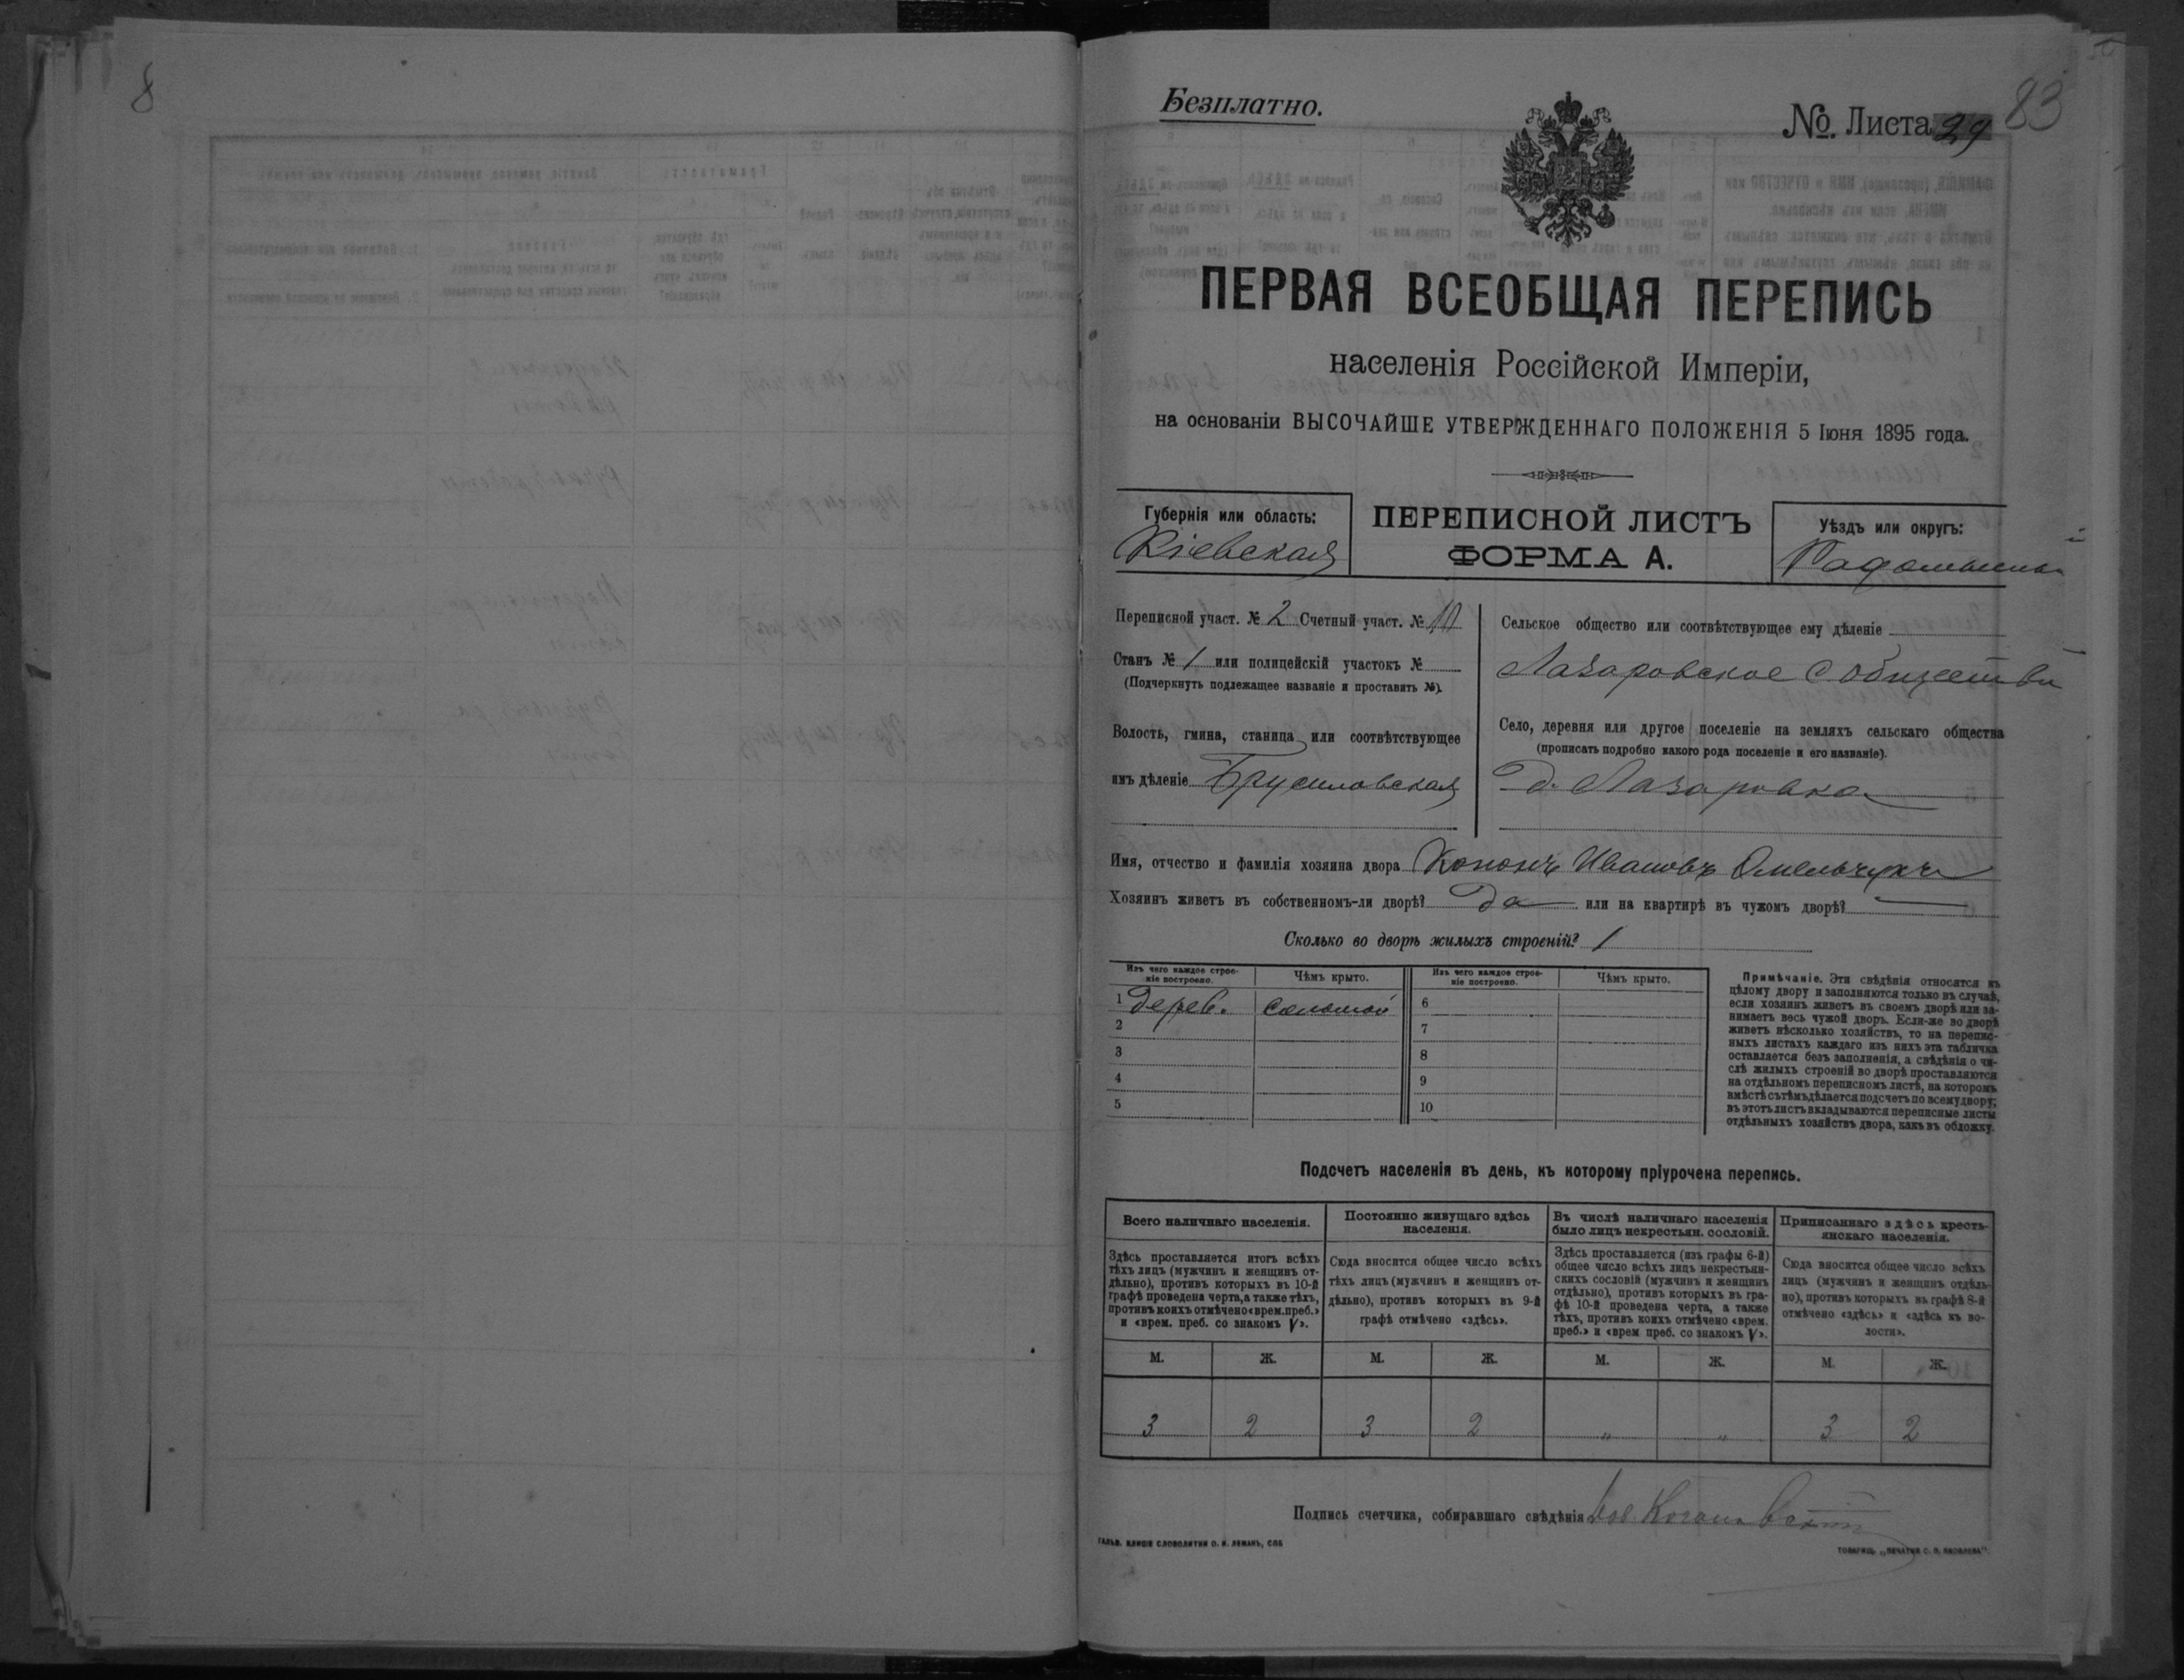 8
Безплатно.
№. Листа 29
83
ПЕРВАЯ ВСЕОБЩАЯ ПЕРЕПИСЬ
населенія Россійской Имперіи,
на основаніи ВЫСОЧАЙШЕ УТВЕРЖДЕННАГО ПОЛОЖЕНІЯ 5 Іюня 1895 года.
Губернія или область:
Кіевская
ПЕРЕПИСНОЙ ЛИСТЪ
ФОРМА А.
Уѣздъ или округъ:
Переписной участ. № 2 Счетный участ. № 10
Станъ № 1 или полицейскій участокъ №
(Подчеркнуть подлежащее названіе и проставить №).
Волость, гмина, станица или соотвѣтствующее
имъ дѣленіе Брусиловская
Сельское общество или соотвѣтствующее ему дѣленіе
Лазаровское
Село, деревня или другое поселеніе на земляхъ сельскаго общества
(прописать подробно какого рода поселеніе и его названіе).
д. Лазаровка
Имя, отчество и фамилія хозяина двора Кононъ Ивановъ Омельчукъ
Хозяинъ живетъ въ собственномъ-ли дворѣ? да или на квартирѣ въ чужомъ дворѣ? —
Сколько во дворѣ жилыхъ строеній? 1
Изъ чего каждое строе-
ніе построено.
Чѣмъ крыто.
Изъ чего каждое строе-
ніе построено.
Чѣмъ крыто.
1 дерев. соломой 6
2 7
3 8
4 9
5 10
Примѣчаніе. Эти свѣдѣнія относятся къ
цѣлому двору и заполняются только въ случаѣ,
если хозяинъ живетъ въ своемъ дворѣ или за-
нимаетъ весь чужой дворъ. Если-же во дворѣ
живетъ нѣсколько хозяйствъ, то на перепис-
ныхъ листахъ каждаго изъ нихъ эта табличка
оставляется безъ заполненія, а свѣдѣнія о чи-
слѣ жилыхъ строеній во дворѣ проставляются
на отдѣльномъ переписномъ листѣ, на которомъ
вмѣстѣ съ тѣмъ дѣлается подсчетъ по всему двору;
въ этотъ листъ вкладываются переписные листы
отдѣльныхъ хозяйствъ двора, какъ въ обложку.
Подсчетъ населенія въ день, къ которому пріурочена перепись.
Всего наличнаго населенія.
Здѣсь проставляется итогъ всѣхъ
тѣхъ лицъ (мужчинъ и женщинъ от-
дѣльно), противъ которыхъ въ 10-й
графѣ проведена черта, а также тѣхъ,
противъ коихъ отмѣчено «врем. преб.»
и «врем. преб. со знакомъ V».
Постоянно живущаго здѣсь
населенія.
Сюда вносится общее число всѣхъ
тѣхъ лицъ (мужчинъ и женщинъ от-
дѣльно), противъ которыхъ въ 9-й
графѣ отмѣчено «здѣсь».
Въ числѣ наличнаго населенія
было лицъ некрестьян. сословій.
Здѣсь проставляется (изъ графы 6-й)
общее число всѣхъ лицъ некрестьян-
скихъ сословій (мужчинъ и женщинъ
отдѣльно), противъ которыхъ въ гра-
фѣ 10-й проведена черта, а также
тѣхъ, противъ коихъ отмѣчено «врем.
преб.» и «врем преб. со знакомъ V».
Приписаннаго здѣсь кресть-
янскаго населенія.
Сюда вносится общее число всѣхъ
лицъ (мужчинъ и женщинъ отдѣль-
но), противъ которыхъ въ графѣ 8-й
отмѣчено «здѣсь» и «здѣсь къ во-
лости».
М. Ж. М. Ж. М. Ж. М. Ж.
3 2 3 2 „ „ 3 2
Подпись счетчика, собиравшаго свѣдѣнія
ГАЛЬВ. КЛИШЕ СЛОВОЛИТНИ О. И. ЛЕМАНЪ, СПБ
ТОВАРИЩ. „ПЕЧАТНЯ С. П. ЯКОВЛЕВА"